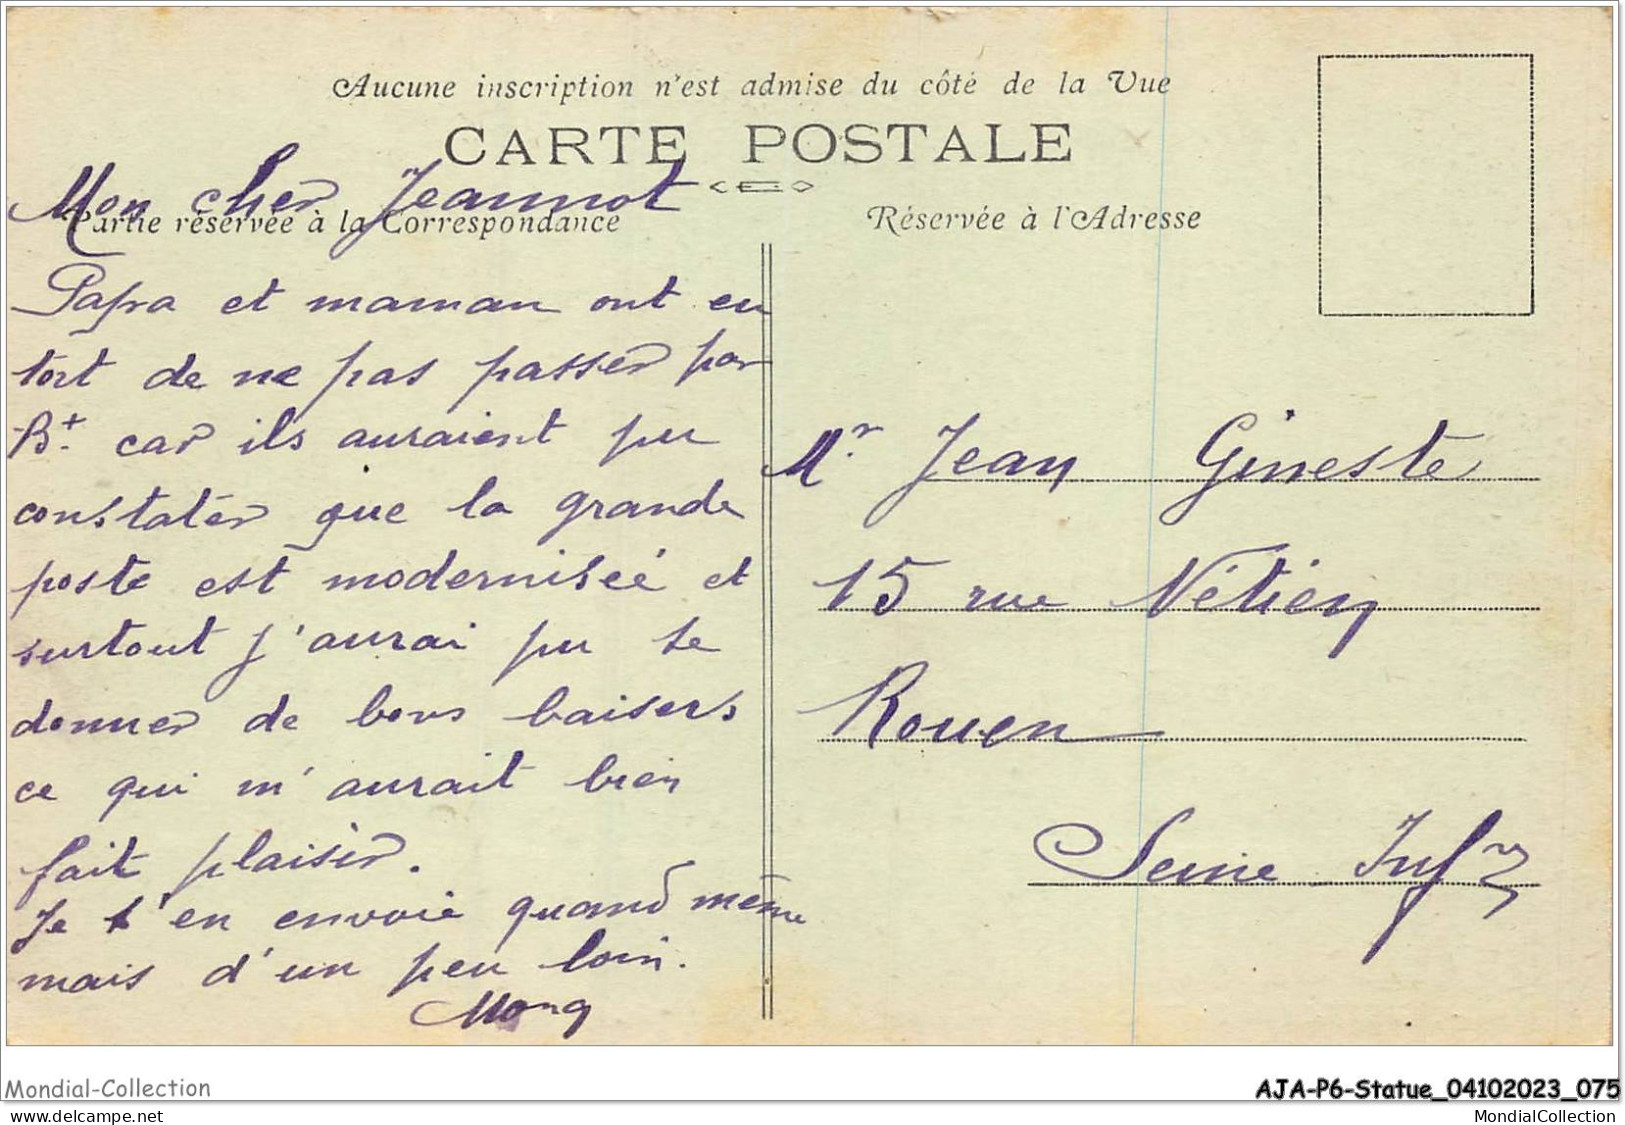 Aucune inscription n'est admise du côté de la Vue
CARTE POSTALE
Partie réservée à la Correspondance
Réservée à l'Adresse
Mon cher Jeannot
Papa et maman ont eu
tort de ne pas passer par
Bt. car ils auraient pu
constater que la grande
poste est modernisée et
surtout j'aurai pu te
donner de bons baisers
ce qui m'aurait bien
fait plaisir.
Je t'en envoie quand même
mais d'un peu loin.
Mr. Jean Gineste
15 rue Nétien
Rouen
Seine Infre
Mondial-Collection
AJA-P6-Statue_04102023_075
www.delcampe.net
MondialCollection